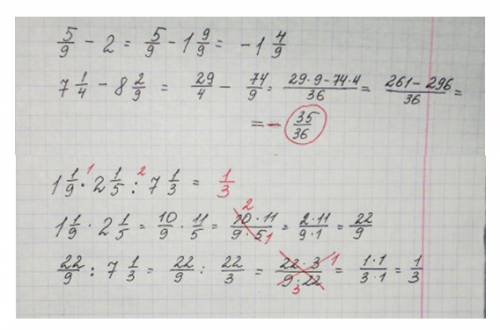 5/9 - 2 = 5/9 - 1 9/9 = -1 4/9
7 1/4 - 8 2/9 = 29/4 - 74/9 = 29·9-74·4/36 = 261-296/36 =
= - 35/36
1 1/9 ·¹ 2 1/5 :² 7 1/3 = 1/3
1 1/9 · 2 1/5 = 10/9 · 11/5 = 10·11/9·5 = 2·11/9·1 = 22/9
22/9 : 7 1/3 = 22/9 : 22/3 = 22·3/9·22 = 1·1/3·1 = 1/3